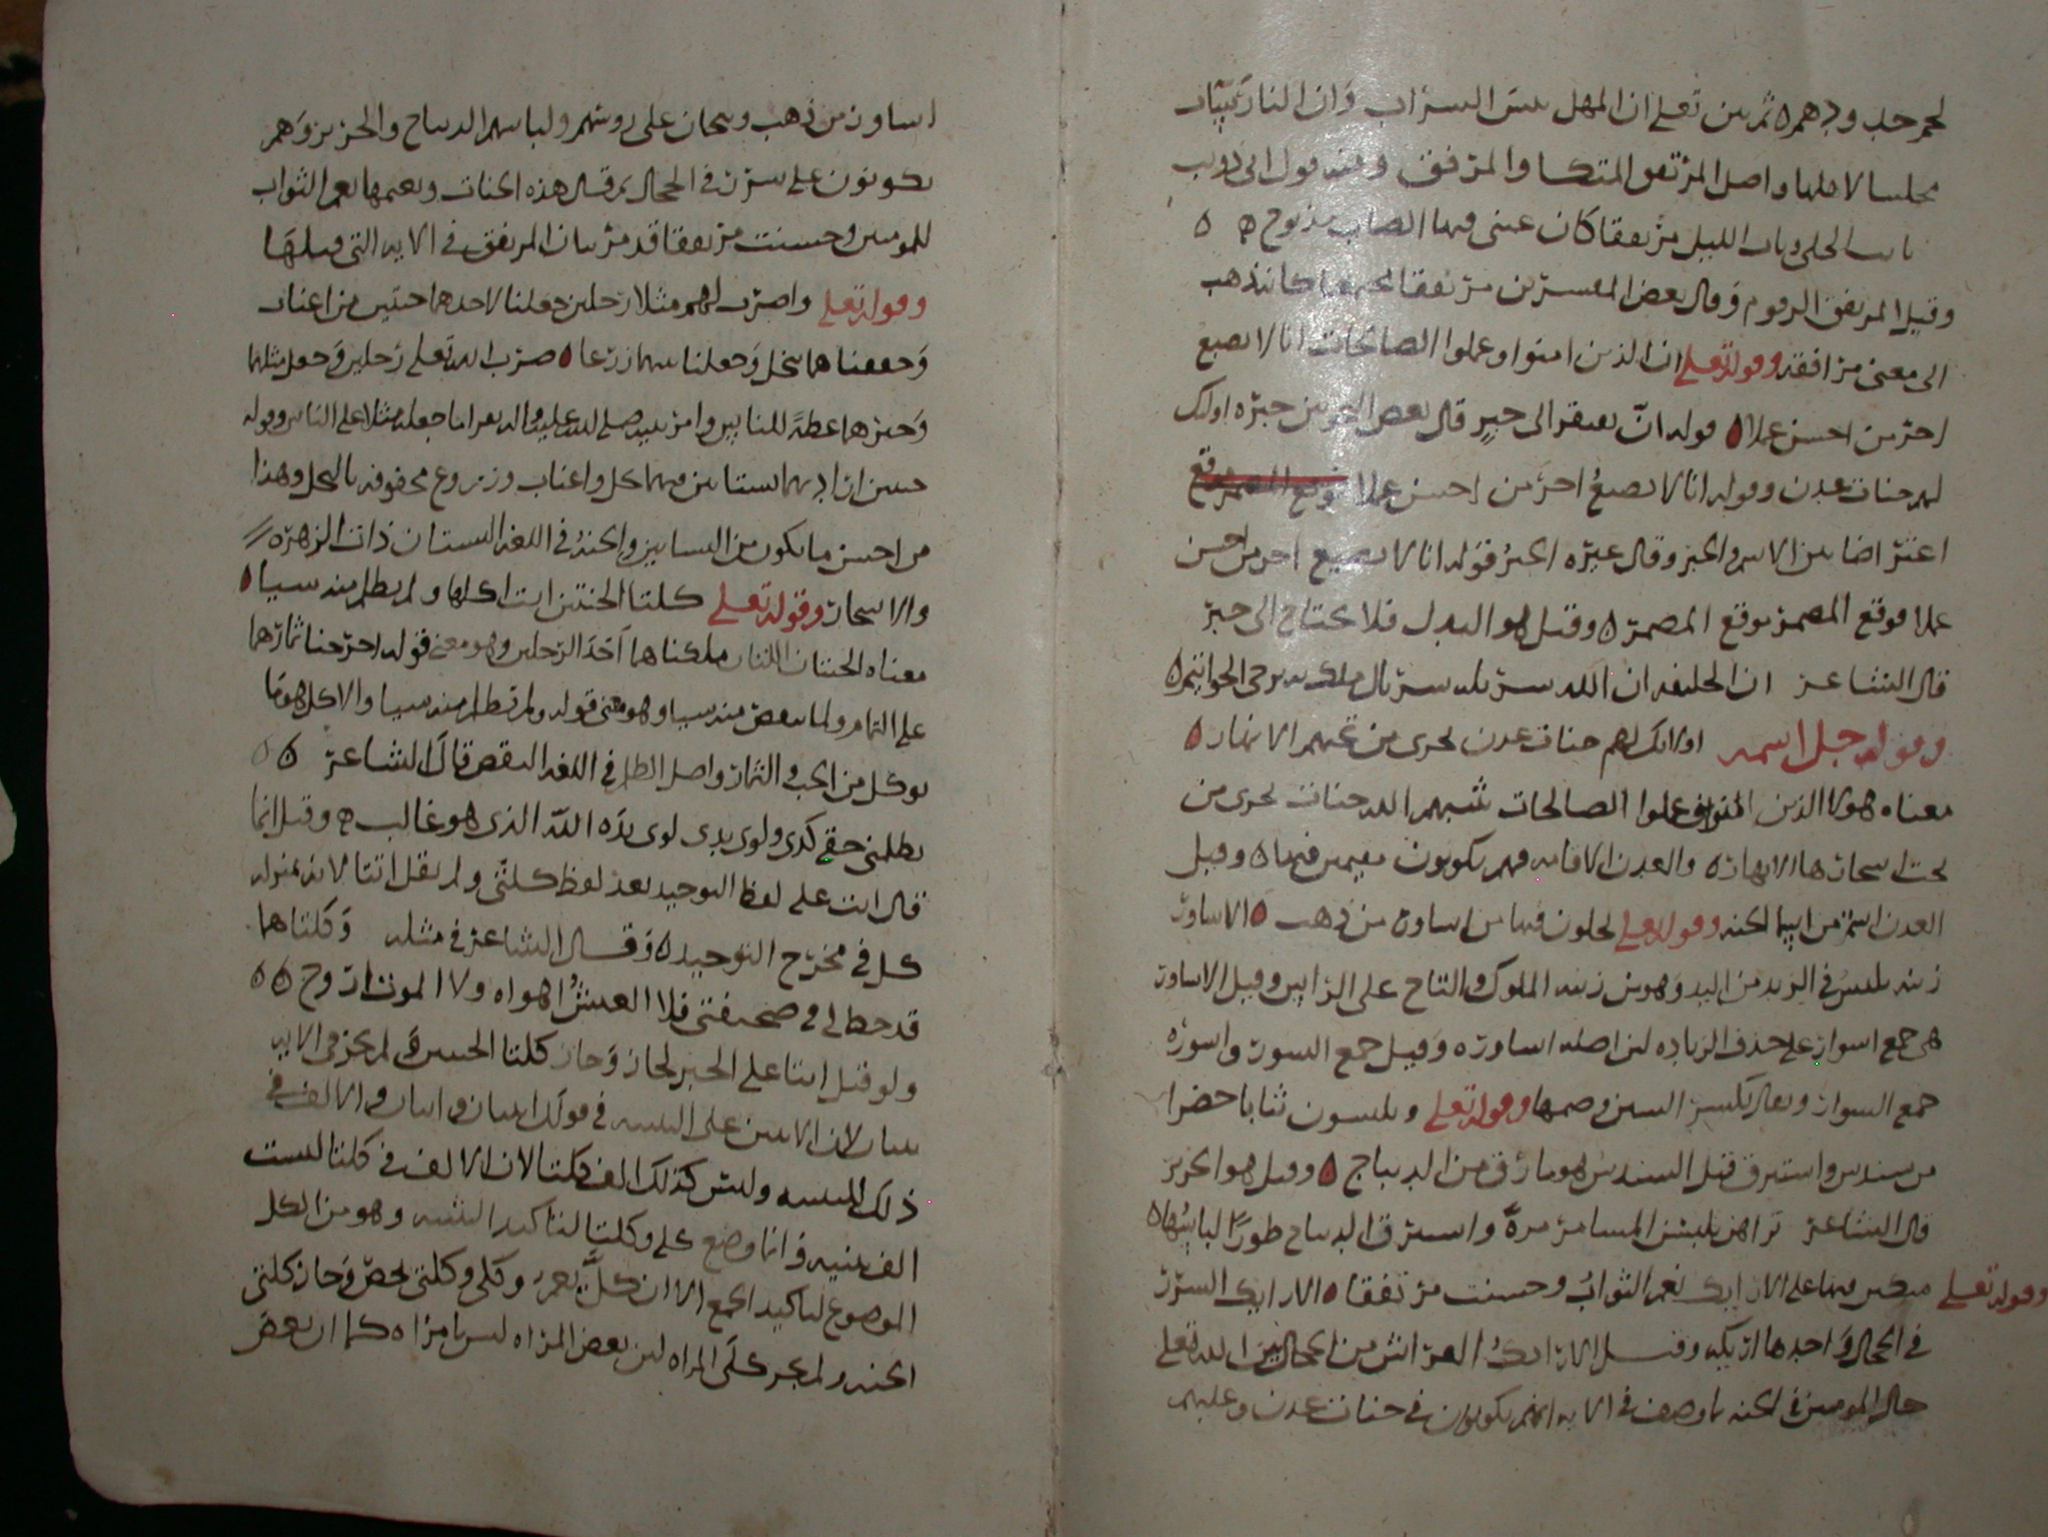 لحم خد وجهه ثم بين تعلى ان المهل بئس الشراب وان النار بئست
مجلسا لاهلها واصل المرتفق المتكا والمرفق ومنه قول ابي ذويب
نام الخلي وبات الليل مرتفقا كان عيني فيها الصاب مذبوح
وقيل المرتفق وقال بعض المفسرين مرتفقا مجتمعا كانه ذهب
الى معنى مرافقه وقوله تعلى ان الذين امنوا وعملوا الصالحات انا لا نضيع
اجر من احسن عملا قوله ان يفتقر الى خبر قال بعض النحويين خبره اوليك
لهم جنات عدن وقوله انا لا نضيع اجر من احسن عملا
اعتراضا بين الاسم والخبر وقال غيره الخبر قوله انا لا نضيع اجر من احسن
عملا فوقع المضمر موقع المضمر وقيل هو البدل فلا يحتاج الى خبر
قال الشاعر ان الخليفه ان الله سربله سربال ملك به ترجى الخواتيم
وقوله جل اسمه اولائك لهم جنات عدن تجري من تحتهم الانهار
معناه هولا الذين امنوا وعملوا الصالحات لهم جنات تجري من
تحت اشجارها الانهار والعدن الاقامه فهم يكونون مقيمين فيها وقيل
العدن اسم من اسما الجنه وقوله تعلى يحلون فيها من اساور من ذهب الاساور
زينه تلبس في الزند من اليد وهو من زينه الملوك والتاج على الراس وقيل الاساور
هو جمع اسوار على حذف الزياده لان اصله اساوره وقيل جمع السور واسوره
جمع السوار ويقال بكسر السين وضمها وقوله تعلى ويلبسون ثيابا خضرا
من سندس واستبرق قيل السندس هو ما رق من الديباج وقيل هو الحرير
قال الشاعر تراهن يلبسن المشاعر مرة واستبرق الديباج طورا لباسها
وقوله تعلى متكين فيها على الارايك نعم الثواب وحسنت مرتفقا الارايك السرر
في الحجال واحدها اريكه وقيل الارايك الفراش من الحجال بين الله تعلى
حال المومنين في الجنه ما وصف في الايه انهم يكونون في جنات عدن وعليهم
اساور من ذهب وتيجان على روسهم ولباسهم الديباج والحرير وهم
يكونون على سرر في الحجال ثم قال هذه الجنات ونعيمها نعم الثواب
للمومنين وحسنت مرتفقا قد مر بيان المرتفق في الايه التي قبلها
وقوله تعلى واضرب لهم مثلا رجلين جعلنا لاحدهما جنتين من اعناب
وحففناهما بنخل وجعلنا بينهما زرعا ضرب الله تعلى رجلين وجعل مثلهما
وخبرهما عظة للناس وامر نبيه صلى الله عليه واله بعد انما جعله مثلا على الناس وقوله
جنتين اي بستانين فيهما نخل واعناب وزروع محفوفه بالنخل وهذا
من احسن ما يكون من البساتين والجنة في اللغه البستان ذات الزهره
والاشجار وقوله تعلى كلتا الجنتين اتت اكلها ولم تظلم منه شيا
معناه الجنتان اللتان ملكناهما احد الرجلين وهو معنى قوله اخرجنا ثمارهما
على التمام ولما ينقص منه شيا وهو معنى قوله ولم تظلم منه شيا والاكل هو ما
يوكل من الحب والثمار واصل الظلم في اللغه النقص قال الشاعر
يظلمني حقي كدى ولوى يدي لوى يده الله الذي هو غالب وقيل انما
قال اتت على لفظ التوحيد بعد لفظ كلتى ولم يقل اتتا لانه بمنزله
كل في مخرج التوحيد وقال الشاعر في مثله وكلتاهما
قد خط لي في صحيفتي فلا العيش اهواه ولا الموت اروح
ولو قيل اتتا على الخبر لجاز وجاز كلتا الجنتين ولم يجز في الايه
بيان لان الاثنين على التثنيه في قولك اثنان واثنتان والالف في
ذلك للتثنيه وليس كذلك الف كلتا لان الالف في كلتا ليست
الف تثنيه وانما وضع على وكلتا لتاكيد التثنيه وهو من الكل
الموضوع لتاكيد الجمع الا ان كل يعم وكلى وكلتى يخص وجاز كلتى
الجنه ولم يجز كلى المراه لان بعض المراه ليس بامراه كما ان بعض